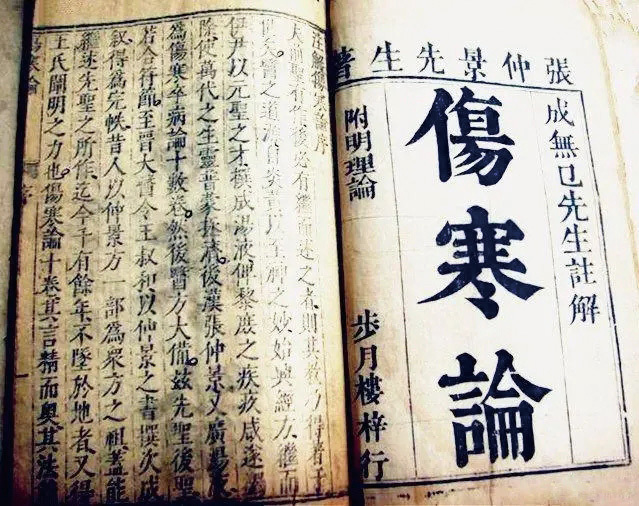 張仲景先生著
成無已先生註解
傷寒論
附明理論
步月樓梓行
註解傷寒論序
夫前聖有作後必有繼而述之者則其教乃得著于
世矣醫之道源自炎黃以至神之妙始興經方繼而
伊尹以元聖之才撰成湯液俾黎庶之疾疚咸遂蠲
除使萬代之生靈普蒙拯濟後漢張仲景又廣湯液
為傷寒卒病論十數卷然後醫方大備茲先聖後聖
若合符節至晉大醫令王叔和以仲景之書撰次成
敘得為完帙昔人以仲景方一部為衆方之祖蓋能
繼述先聖之所作迄今千有餘年不墜於地者又得
王氏闡明之力也傷寒論十卷其言精而奧其法
傷寒論 序